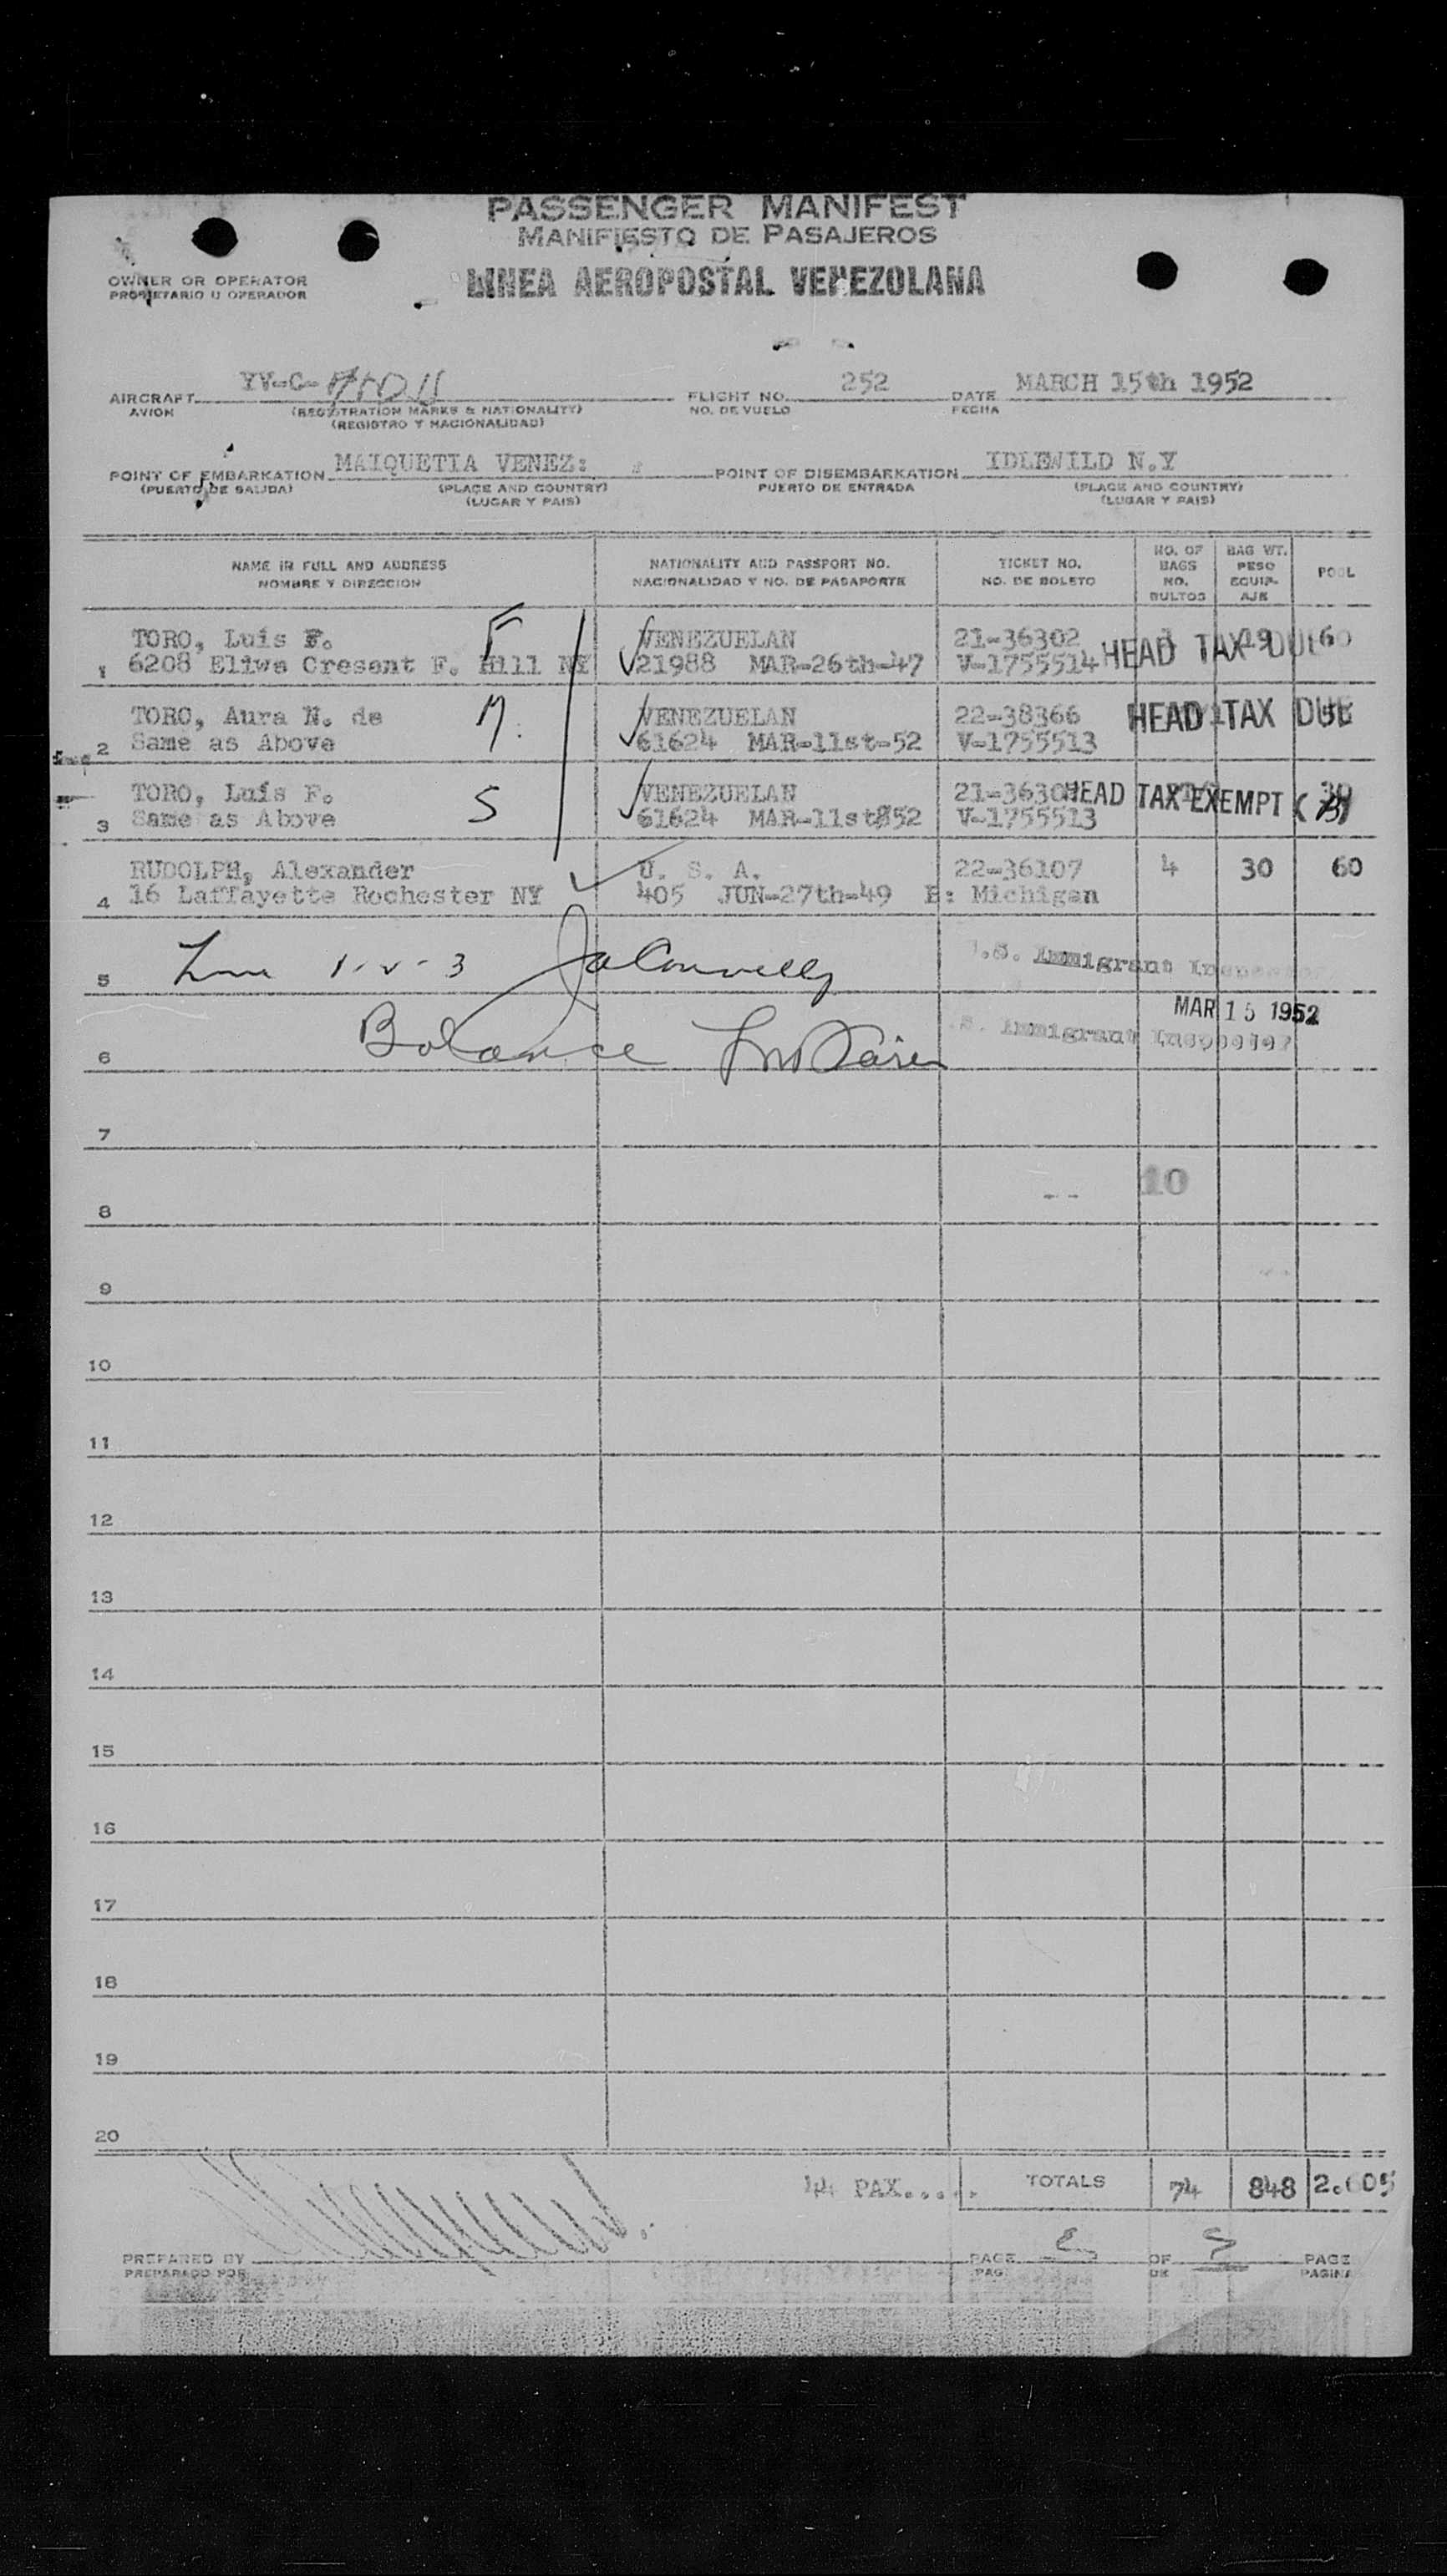 PASSENGER MANIFEST
MANIFIESTO DE PASAJEROS
OWNER OR OPERATOR
PROPIETARIO U OPERADOR
LINEA AEROPOSTAL VENEZOLANA
AIRCRAFT YV-C- FLIGHT NO. 252 DATE MARCH 15th 1952
AVION (REGISTRATION MARKS & NATIONALITY) NO. DE VUELO FECHA
(REGISTRO Y NACIONALIDAD)
POINT OF EMBARKATION MAIQUETIA VENEZ: POINT OF DISEMBARKATION IDLEWILD N.Y
(PUERTO DE SALIDA) (PLACE AND COUNTRY) PUERTO DE ENTRADA (PLACE AND COUNTRY)
(LUGAR Y PAIS) (LUGAR Y PAIS)
NAME IN FULL AND ADDRESS NATIONALITY AND PASSPORT NO. TICKET NO. NO. OF BAGS BAG WT. POOL
NOMBRE Y DIRECCION NACIONALIDAD Y NO. DE PASAPORTE NO. DE BOLETO NO. BULTOS PESO EQUIP-AJE
TORO, Luis F. F VENEZUELAN 21-36302 19 60
1 6208 Eliwa Cresent F. Hill NY 21988 MAR-26th-47 V-1755514 HEAD TAX DUE
TORO, Aura N. de M. VENEZUELAN 22-38366 HEAD TAX DUE
2 Same as Above 61624 MAR-11st-52 V-1755513
TORO, Luis F. S VENEZUELAN 21-3630 HEAD TAX EXEMPT 30
3 Same as Above 61624 MAR-11st 52 V-1755513
RUDOLPH, Alexander U. S. A. 22-36107 4 30 60
4 16 Laffayette Rochester NY 405 JUN-27th-49 B: Michigan
5 Line 1-2-3 JaConnelly U.S. Immigrant Inspector
MAR 15 1952
6 Balance S. Immigrant Inspector
7
10
8
9
10
11
12
13
14
15
16
17
18
19
20
44 PAX..... TOTALS 74 848 2.605
PREPARED BY PAGE OF PAGE
PREPARADO POR PAG DE PAGINA